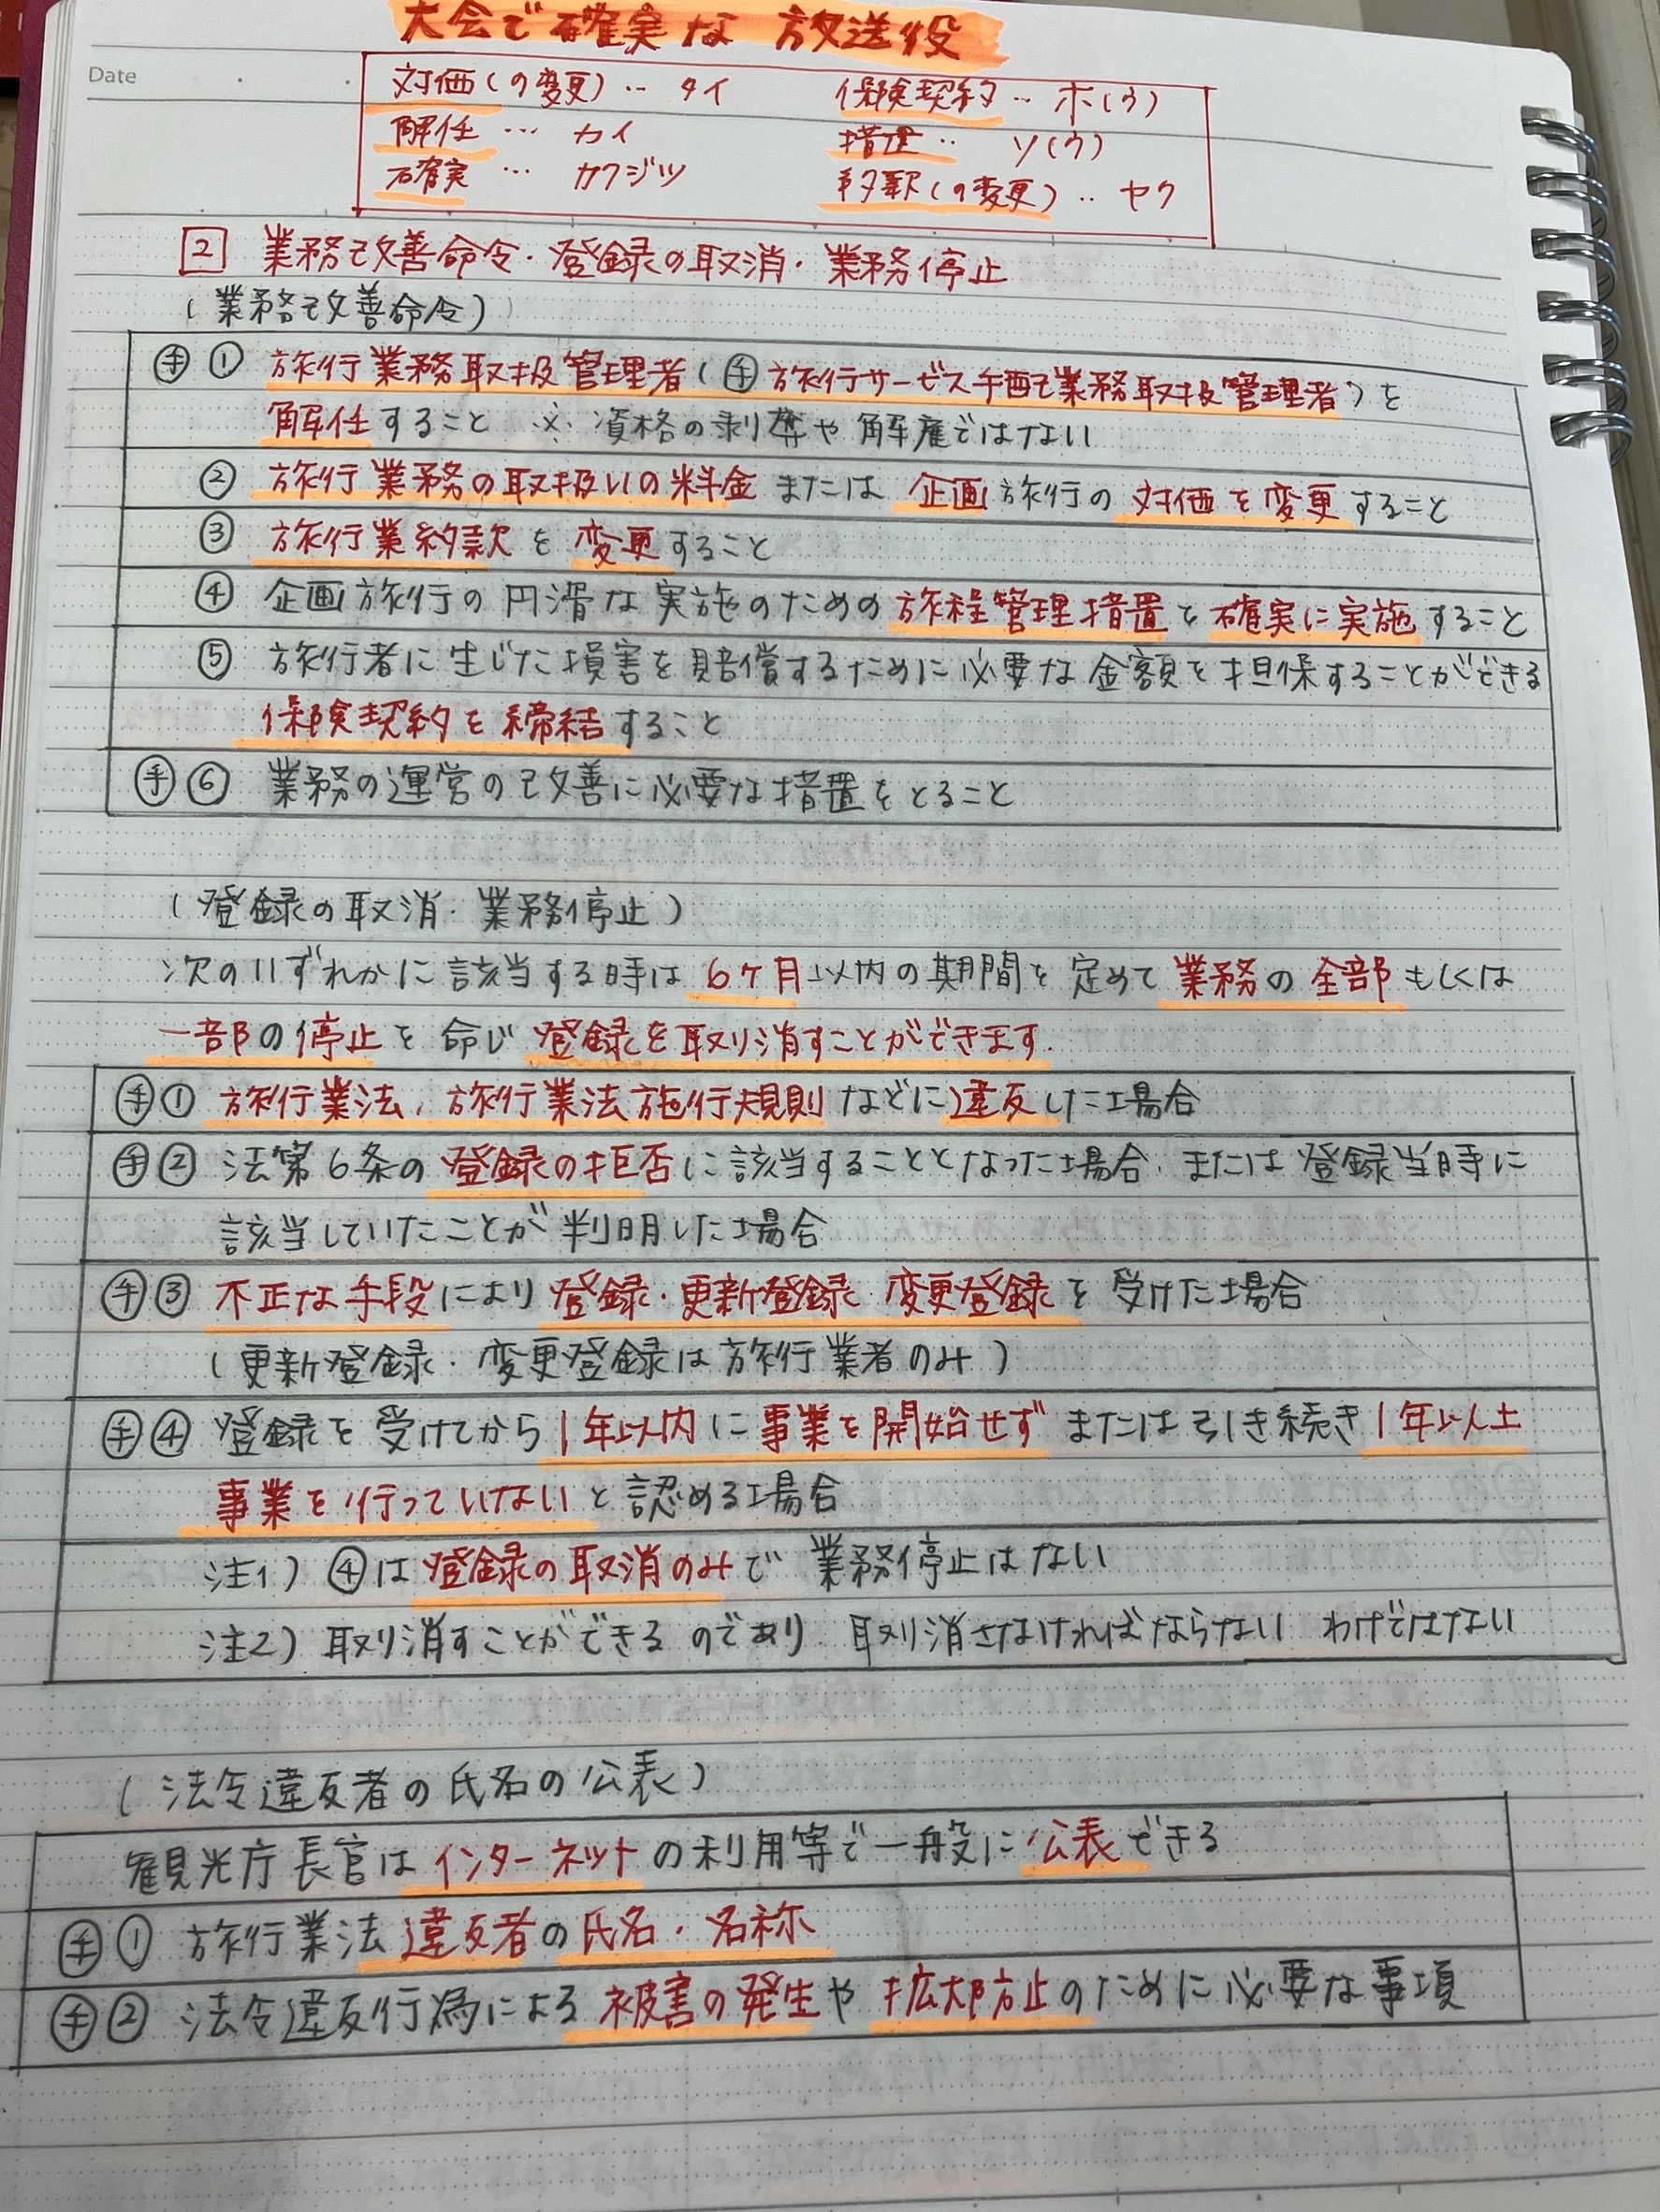 大会で確実な放送役
Date
対価(の変更)‥タイ 保険契約‥ホ(ウ)
解任…カイ 措置‥ソ(ウ)
確実…カクジツ 約款(の変更)‥ヤク
2 業務改善命令・登録の取消・業務停止
(業務改善命令)
手① 旅行業務取扱管理者(手旅行サービス手配業務取扱管理者)を
解任すること ※資格の剥奪や解雇ではない
② 旅行業務の取扱いの料金または企画旅行の対価を変更すること
③ 旅行業約款を変更すること
④ 企画旅行の円滑な実施のための旅程管理措置を確実に実施すること
⑤ 旅行者に生じた損害を賠償するために必要な金額を担保することができる
保険契約を締結すること
手⑥ 業務の運営の改善に必要な措置をとること
(登録の取消・業務停止)
次のいずれかに該当する時は6ケ月以内の期間を定めて業務の全部もしくは
一部の停止を命じ登録を取り消すことができます.
手① 旅行業法,旅行業法施行規則などに違反した場合
手② 法第6条の登録の拒否に該当することとなった場合,または登録当時に
該当していたことが判明した場合
手③ 不正な手段により登録・更新登録・変更登録を受けた場合
(更新登録・変更登録は旅行業者のみ)
手④ 登録を受けてから1年以内に事業を開始せずまたは引き続き1年以上
事業を行っていないと認める場合
注1) ④は登録の取消のみで業務停止はない
注2) 取り消すことができるのであり 取り消さなければならない わけではない
(法令違反者の氏名の公表)
観光庁長官はインターネットの利用等で一般に公表できる
手① 旅行業法違反者の氏名・名称
手② 法令違反行為による被害の発生や拡大防止のために必要な事項